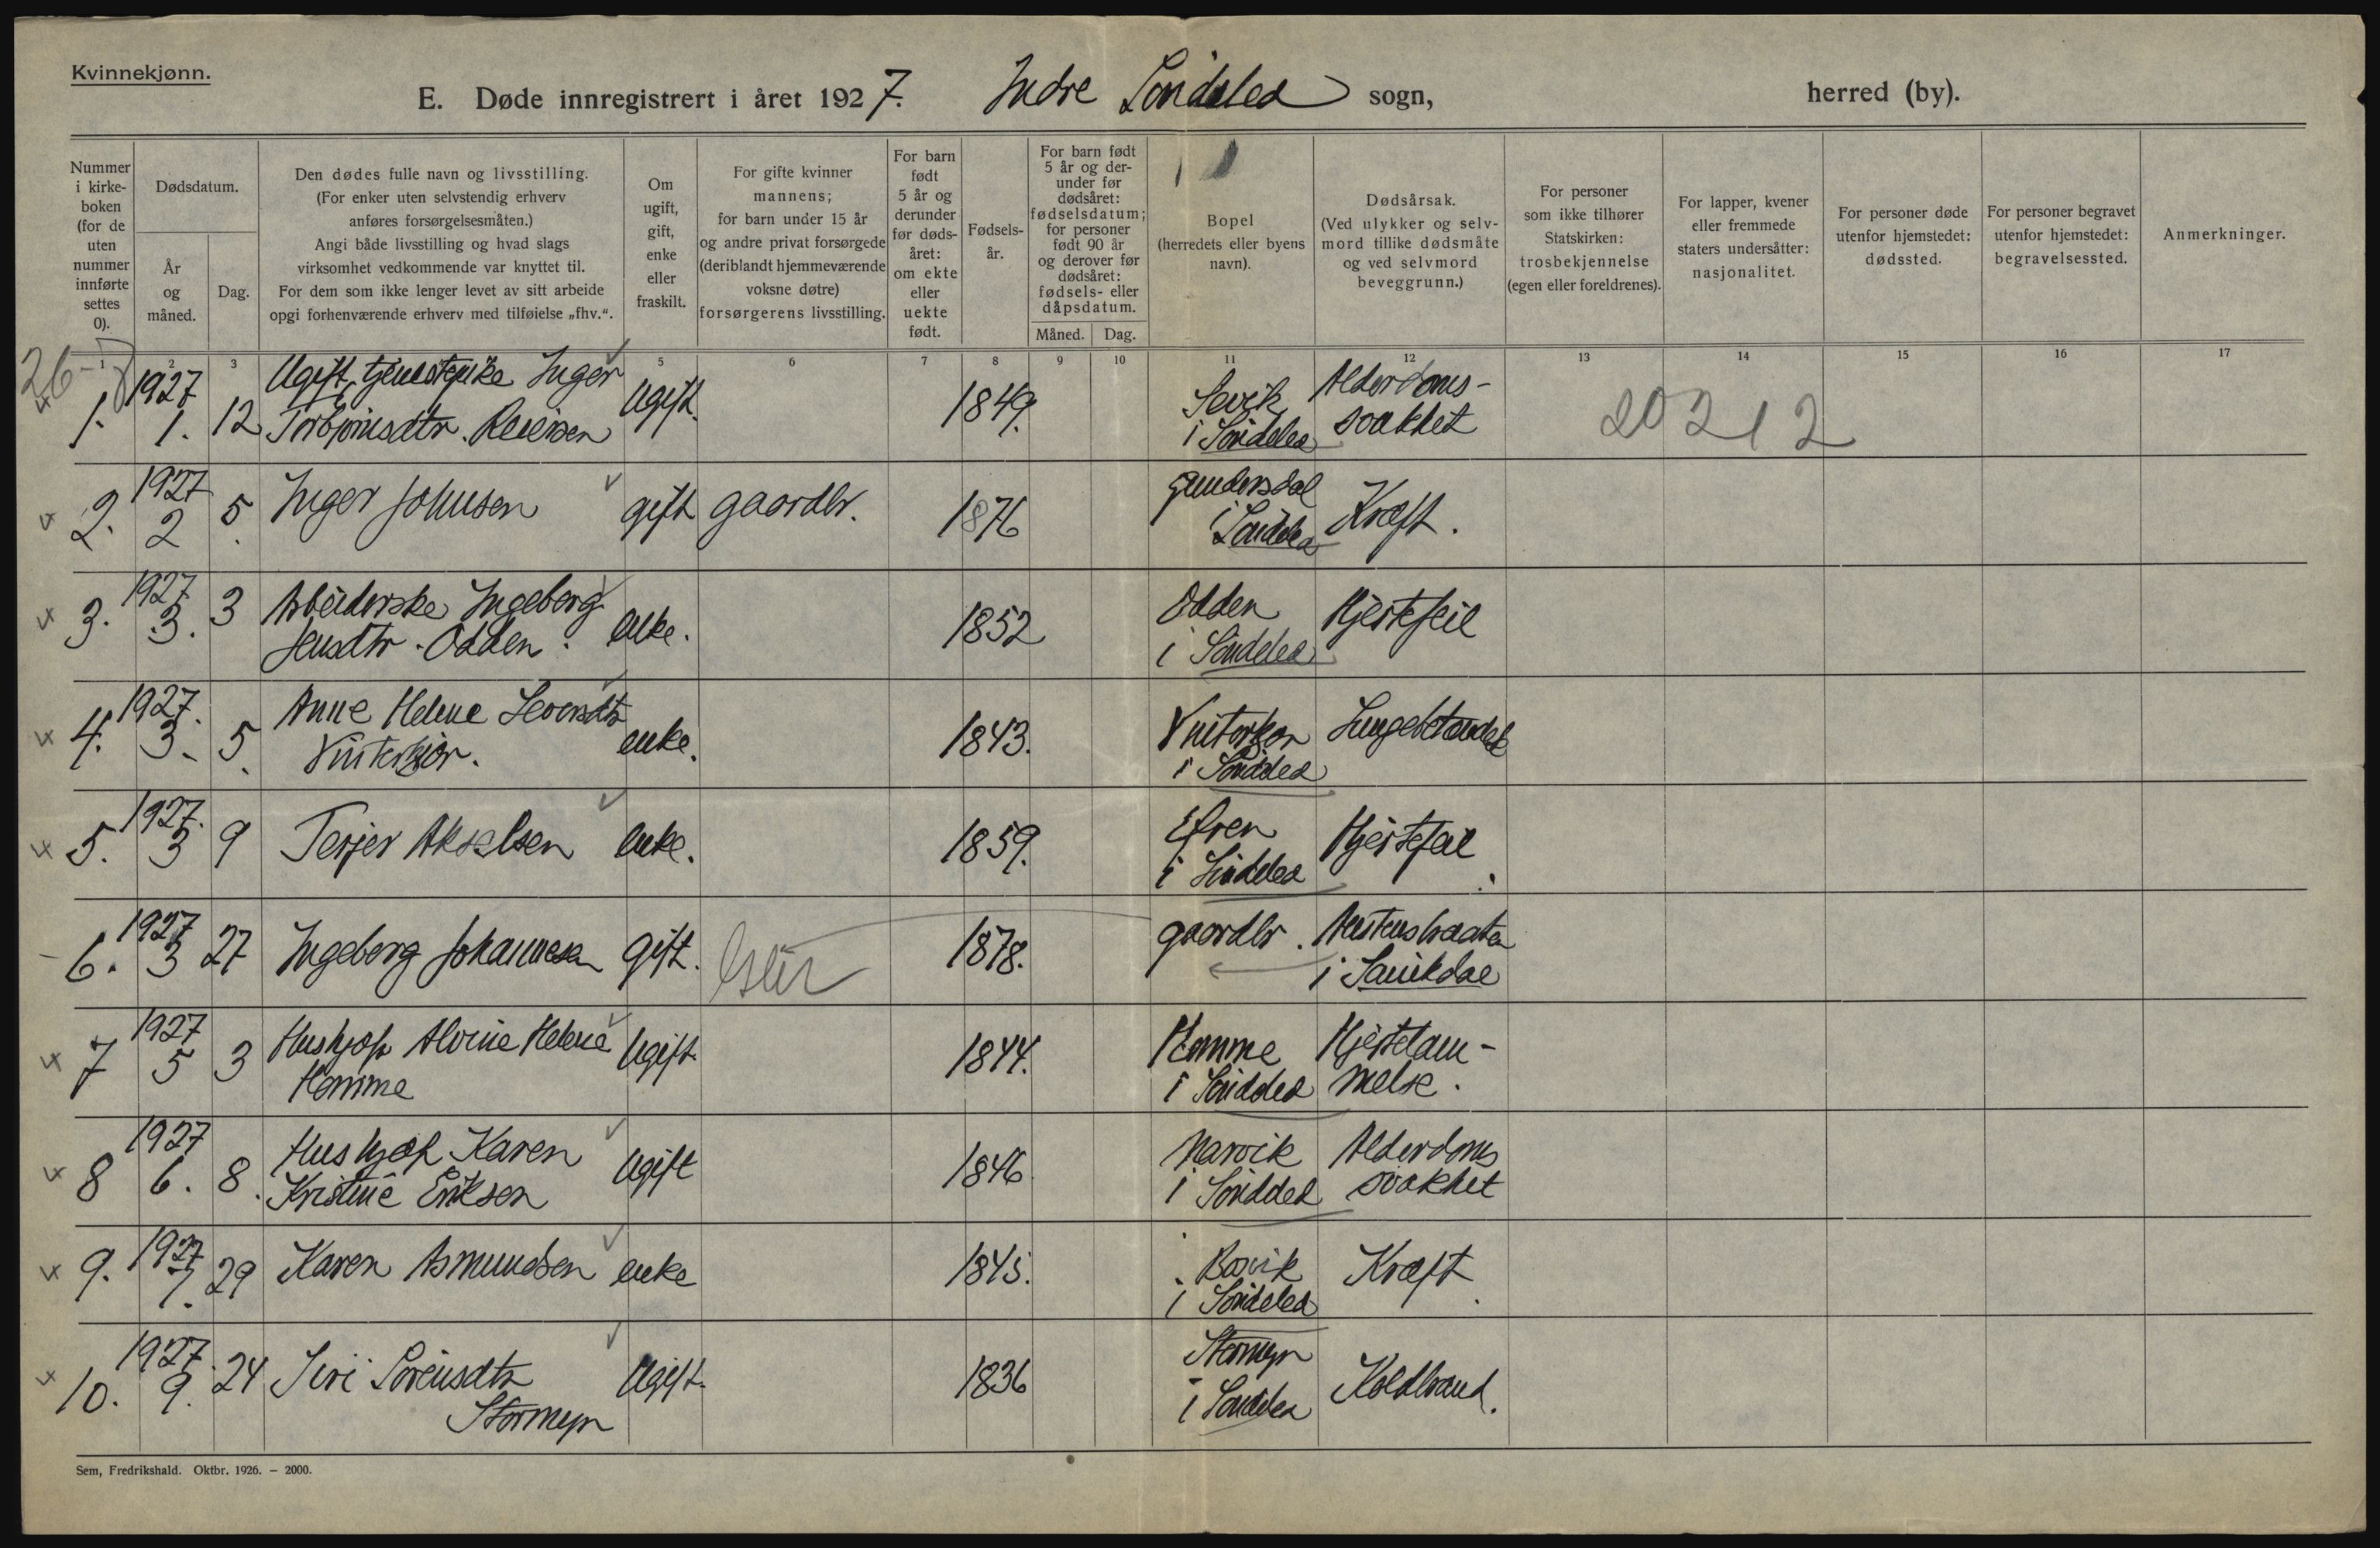 Kvinnekjønn.
E. Døde innregistrert i året 1927. Indre Söndeled sogn, herred (by).
Nummer i kirke-boken (for de uten nummer innførte settes 0).
Dødsdatum.
År og måned.
Dag.
Den dødes fulle navn og livsstilling.
(For enker uten selvstendig erhverv
anføres forsørgelsesmåten.)
Angi både livsstilling og hvad slags
virksomhet vedkommende var knyttet til.
For dem som ikke lenger levet av sitt arbeide
opgi forhenværende erhverv med tilføielse „fhv.“.
Om
ugift,
gift,
enke
eller
fraskilt.
For gifte kvinner
mannens;
for barn under 15 år
og andre privat forsørgede
(deriblandt hjemmeværende
voksne døtre)
forsørgerens livsstilling.
For barn
født
5 år og
derunder
før døds-
året:
om ekte
eller
uekte
født.
Fødsels-
år.
For barn født
5 år og der-
under før
dødsåret:
fødselsdatum;
for personer
født 90 år
og derover før
dødsåret:
fødsels- eller
dåpsdatum.
Måned. Dag.
Bopel
(herredets eller byens
navn).
Dødsårsak.
(Ved ulykker og selv-
mord tillike dødsmåte
og ved selvmord
beveggrunn.)
For personer
som ikke tilhører
Statskirken:
trosbekjennelse
(egen eller foreldrenes).
For lapper, kvener
eller fremmede
staters undersåtter:
nasjonalitet.
For personer døde
utenfor hjemstedet:
dødssted.
For personer begravet
utenfor hjemstedet:
begravelsessted.
Anmerkninger.
1 2 3 5 6 7 8 9 10 11 12 13 14 15 16 17
1927 Ugift tjenestepike Inger Sevik Alderdoms-
1. 1. 12 Torbjörnsdtr. Reiersen Ugift. 1849. i Söndeled svakhet 20212
1927 Gundersdal
2. 2 5. Inger Johnsen gift gaardbr. 1876 i Söndeled Kræft.
1927 Arbeiderske Ingeborg Odden Hjertefeil
3. 3. 3 Jensdtr. Odden. enke. 1852 i Söndeled
1927. Anne Helene Vinterkjær Lungebetændelse
4. 3. 5. Vinterkjær. enke. 1843. i Söndeled
1927.
5. 3 9 Terjer Akselsen enke. 1859. i Söndeled Hjertefeil.
1927 gaardbr.
6. 3 27 Ingeborg Johannesen gift. 1878. i Sannikdal
1927 Hushjælp Alvine Helene Homme Hjertelam-
7 5 3 Homme Ugift. 1844. i Söndeled melse.
1927 Hushjælp Karen Narvik Alderdoms
8 6. 8. Kristine Eriksen Ugift 1846 i Söndeled svakhet
1927 Barvik
9. 7. 29 Karen Asmundsen enke 1845. i Söndeled Kræft.
1927. Stormyr
10. 9. 24 Siri Sörensdtr Ugift. 1836 i Söndeled Koldbrand.
Stormyr
Sem, Fredrikshald. Oktbr. 1926. – 2000.